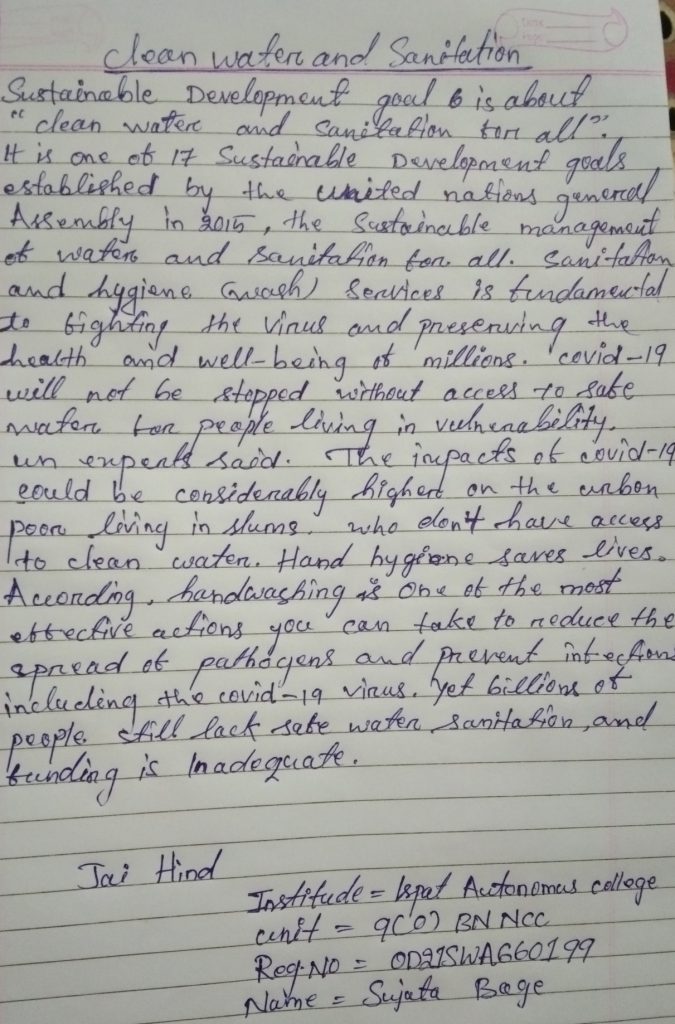 clean water and Sanitation
Sustainable Development goal 6 is about
"clean water and sanitation for all".
It is one of 17 Sustainable Development goals
established by the united nations general
Assembly in 2015, the Sustainable management
of water and sanitation for all. Sanitation
and hygiene (wash) Services is fundamental
to fighting the virus and preserving the
health and well-being of millions. 'covid-19
will not be stopped without access to safe
water for people living in vulnerability.
un experts said. The impacts of covid-19
could be considerably higher on the urban
poor living in slums. who don't have access
to clean water. Hand hygiene saves lives.
According, handwashing is one of the most
effective actions you can take to reduce the
spread of pathogens and prevent infections
including the covid-19 virus. Yet billions of
people still lack safe water sanitation, and
funding is Inadequate.
Jai Hind
Institude = Ispat Autonomus college
unit = 9(O) BN NCC
Reg.NO = OD21SWA660199
Name = Sujata Bage